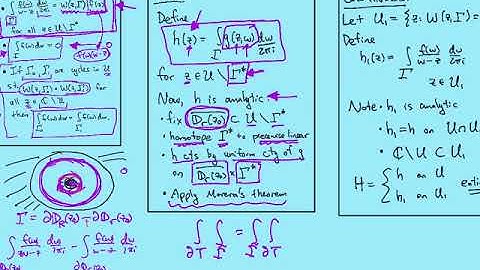 • ∫_Γ f(w)/(w-z) dw/2πi = W(z,Γ) f(z)
for all z ∈ U \ Γ*
• ∫_Γ f(w) dw = 0
f(w)(w-z)
• If Γ₀, Γ₁ are cycles in U
s.t. W(z,Γ₀) = W(z,Γ₁) for
all z ∈ ℂ \ U
then ∫_Γ₀ f(w)dw = ∫_Γ₁ f(w)dw.
Γ = ∂D_R(z₀) - ∂D_r(z₀)
∫ f(w)/(w-z) dw/2πi - ∫ f(w)/(w-z) dw/2πi
∂D_R(z₀) ∂D_r(z₀)
Define
h(z) = ∫_Γ g(z,w) dw/2πi
for z ∈ U \ Γ*
Now, h is analytic
• fix D_r(z₀) ⊂ U \ Γ*
• homotope Γ* to piecewise linear
• h cts by uniform cty of g
on D_r(z₀) × Γ*
• Apply Morera's theorem
∫_∂T ∫_Γ = ∫_Γ ∫_∂T
Let U₁ = {z: W(z,Γ) =
Define
h₁(z) = ∫_Γ f(w)/(w-z) dw/2πi
z ∈ U₁
Note • h₁ is analytic
• h₁ = h on U∩U
• ℂ\U ⊂ U₁
H = { h on U
h₁ on U₁